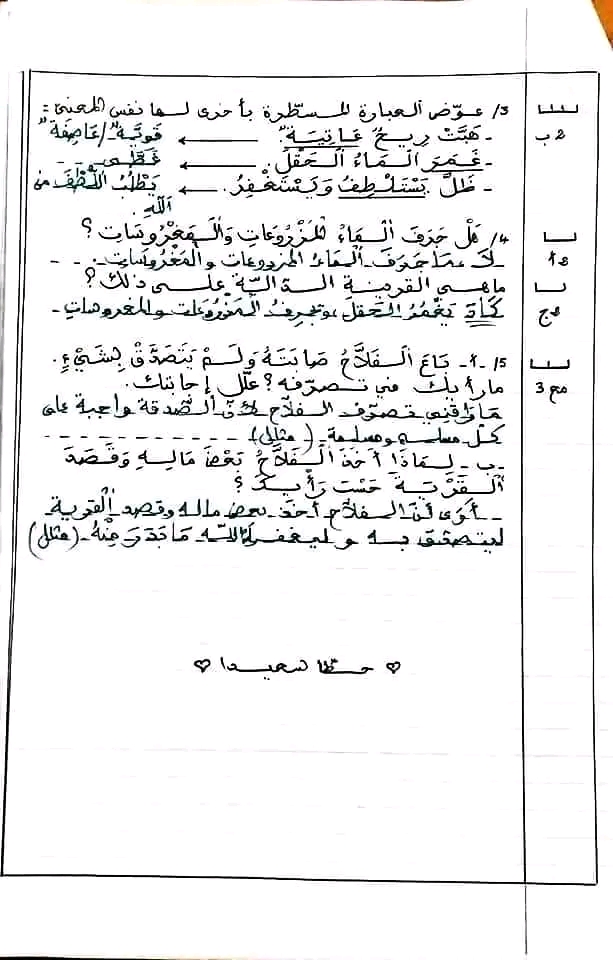 3/ عوّض العبارة المسطّرة بأخرى لها نفس المعنى:
- هَبَّتْ رِيحٌ عَاتِيَةٌ. ← قَوِيَّةٌ/عَاصِفَةٌ
- غَمَرَ الْمَاءُ الْحَقْلَ. ← غَطَّى
- ظَلَّ يَسْتَلْطِفُ وَيَسْتَغْفِرُ. ← يَطْلُبُ اللُّطْفَ من
اللّهِ
4/ هَلْ جَرَفَ الْمَاءُ الْمَزْرُوعَاتِ وَالْمَغْرُوسَاتِ؟
لَا مَا جَرَفَ الماءُ المزروعات و المغروسات
ما هي القرينة الدالّة على ذلك؟
كَادَ يَغْمُرُ الحقل وتجرف المزروعات والمغروسات
5/ -أ- بَاعَ الْفَلَّاحُ صَابَتَهُ وَلَمْ يَتَصَدَّقْ بِشَيْءٍ.
ما رأيك في تصرّفه؟ علّل إجابتك.
ما راقني تصرّف الفلاح لأنّ الصّدقة واجبة على
كلّ مسلم ومسلمة (مثال)
-ب- لِمَاذَا أَخَذَ الْفَلَّاحُ بَعْضَ مَالِهِ وَقَصَدَ
الْقَرْيَةَ حَسْبَ رَأْيِكَ؟
- أرى أنّ الفلاح أخذ بعض ماله وقصد القرية
ليتصدّق به و ليغفر اللّه مَا بَدَرَ مِنْهُ (مثال)
♡ حظّا سعيدا ♡
مع3